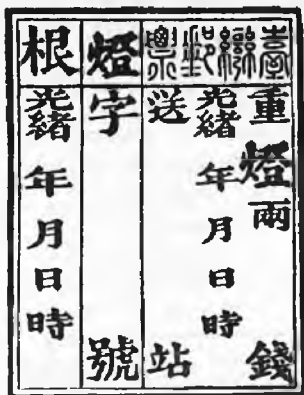 臺灣郵票
重燈兩 錢
光緒 年月日時
送 站
燈字 號
根
光緒 年月日時